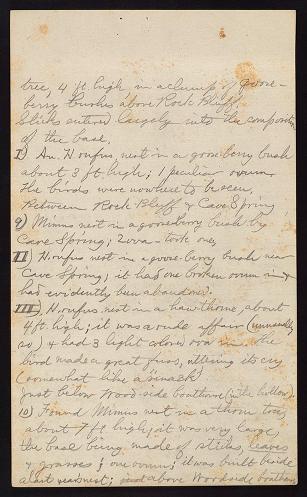 tree, 4 ft. high in a clump of goose-
berry bushes above Rock Bluff.
Sticks entered largely into the composition
of the base.
I) An H. rufus nest in a gooseberry bush
about 3 ft. high; 1 peculiar ovum
the birds were nowhere to be seen,
Between Rock Bluff & Cave Spring
9) Mimus nest in a gooseberry bush by
Cave Spring; 2 ova - took one,
II) H. rufus nest in a goose-berry bush near
Cave Spring; it had one broken ovum in &
had evidently been abandoned.
III) H. rufus nest in a hawthorne, about
4 ft. high; it was a rude affair (unusually
so) & had 3 light colored ova in it the
bird made a great fuss, uttering its cry
(somewhat like a smack)
just below Woodside boathouse (in the hollow).
10) Found Mimus nest in a thorn tree,
about 7 ft. high; it was very large,
the base being made of sticks, leaves
& grasses; one ovum; it was built beside
a last years nest; just above Woodside boathouse